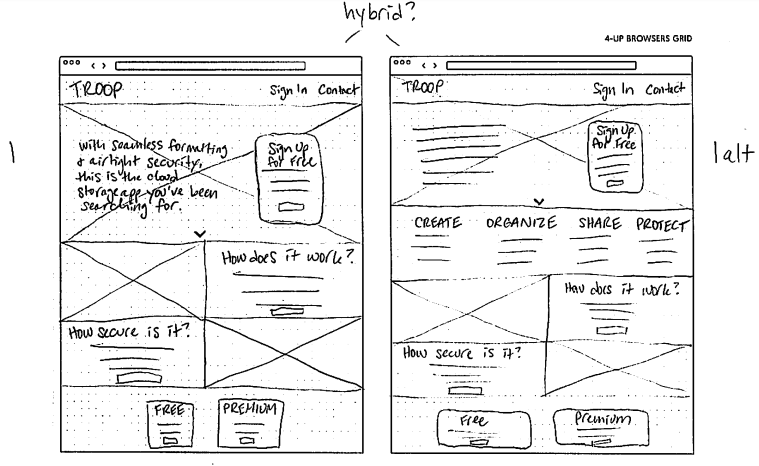 hybrid?
4-UP BROWSERS GRID
1
TROOP
Sign In Contact
with seamless formatting
& airtight security,
this is the cloud
storage app you've been
searching for.
Sign Up
for Free
How does it work?
How secure is it?
FREE
PREMIUM
1 alt
TROOP
Sign In Contact
Sign Up
for Free
CREATE ORGANIZE SHARE PROTECT
How does it work?
How secure is it?
Free
Premium